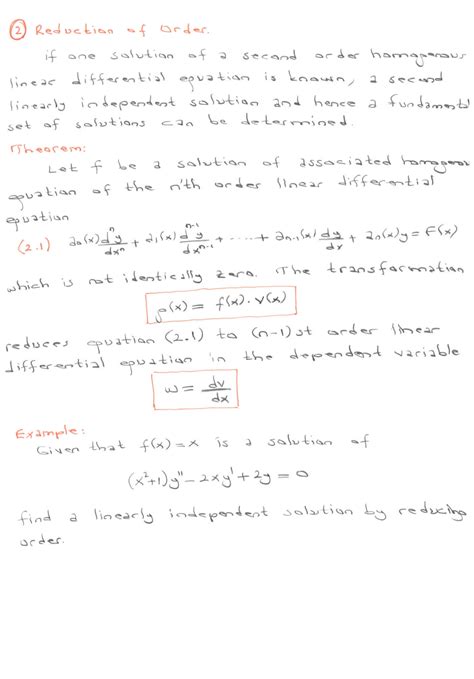 ② Reduction of Order.
if one solution of a second order homogenous
linear differential equation is known, a second
linearly independent solution and hence a fundamental
set of solutions can be determined.
Theorem:
Let f be a solution of associated homogenous
equation of the n'th order linear differential
equation
(2.1) a₀(x) dⁿy/dxⁿ + a₁(x) dⁿ⁻¹y/dxⁿ⁻¹ + ..... + aₙ₋₁(x) dy/dx + aₙ(x)y = F(x)
which is not identically zero. The transformation
y(x) = f(x).v(x)
reduces equation (2.1) to (n-1)st order linear
differential equation in the dependent variable
w = dv/dx
Example:
Given that f(x)=x is a solution of
(x²+1)y" - 2xy' + 2y = 0
find a linearly independent solution by reducing
order.